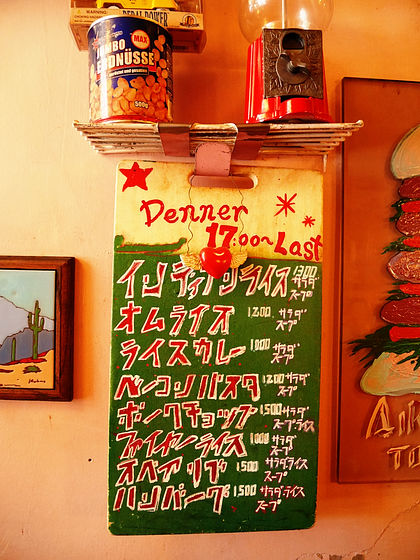 WARNING:
PEDAL POWER
JUMBO
MAX
ERDNÜSSE
geröstet und gesalzen
500g
Denner
17:00~Last
インディアンライス 1300 サラダ スープ
オムライス 1200 サラダ スープ
ライスカレー 1000 サラダ スープ
ベーコンパスタ 1200 サラダ スープ
ポークチョップ 1500 サラダ スープライス
ファイヤーライス 1000 サラダ スープ
スペアリブ 1500 サラダライス スープ
ハンバーグ 1500 サラダ・ライス スープ